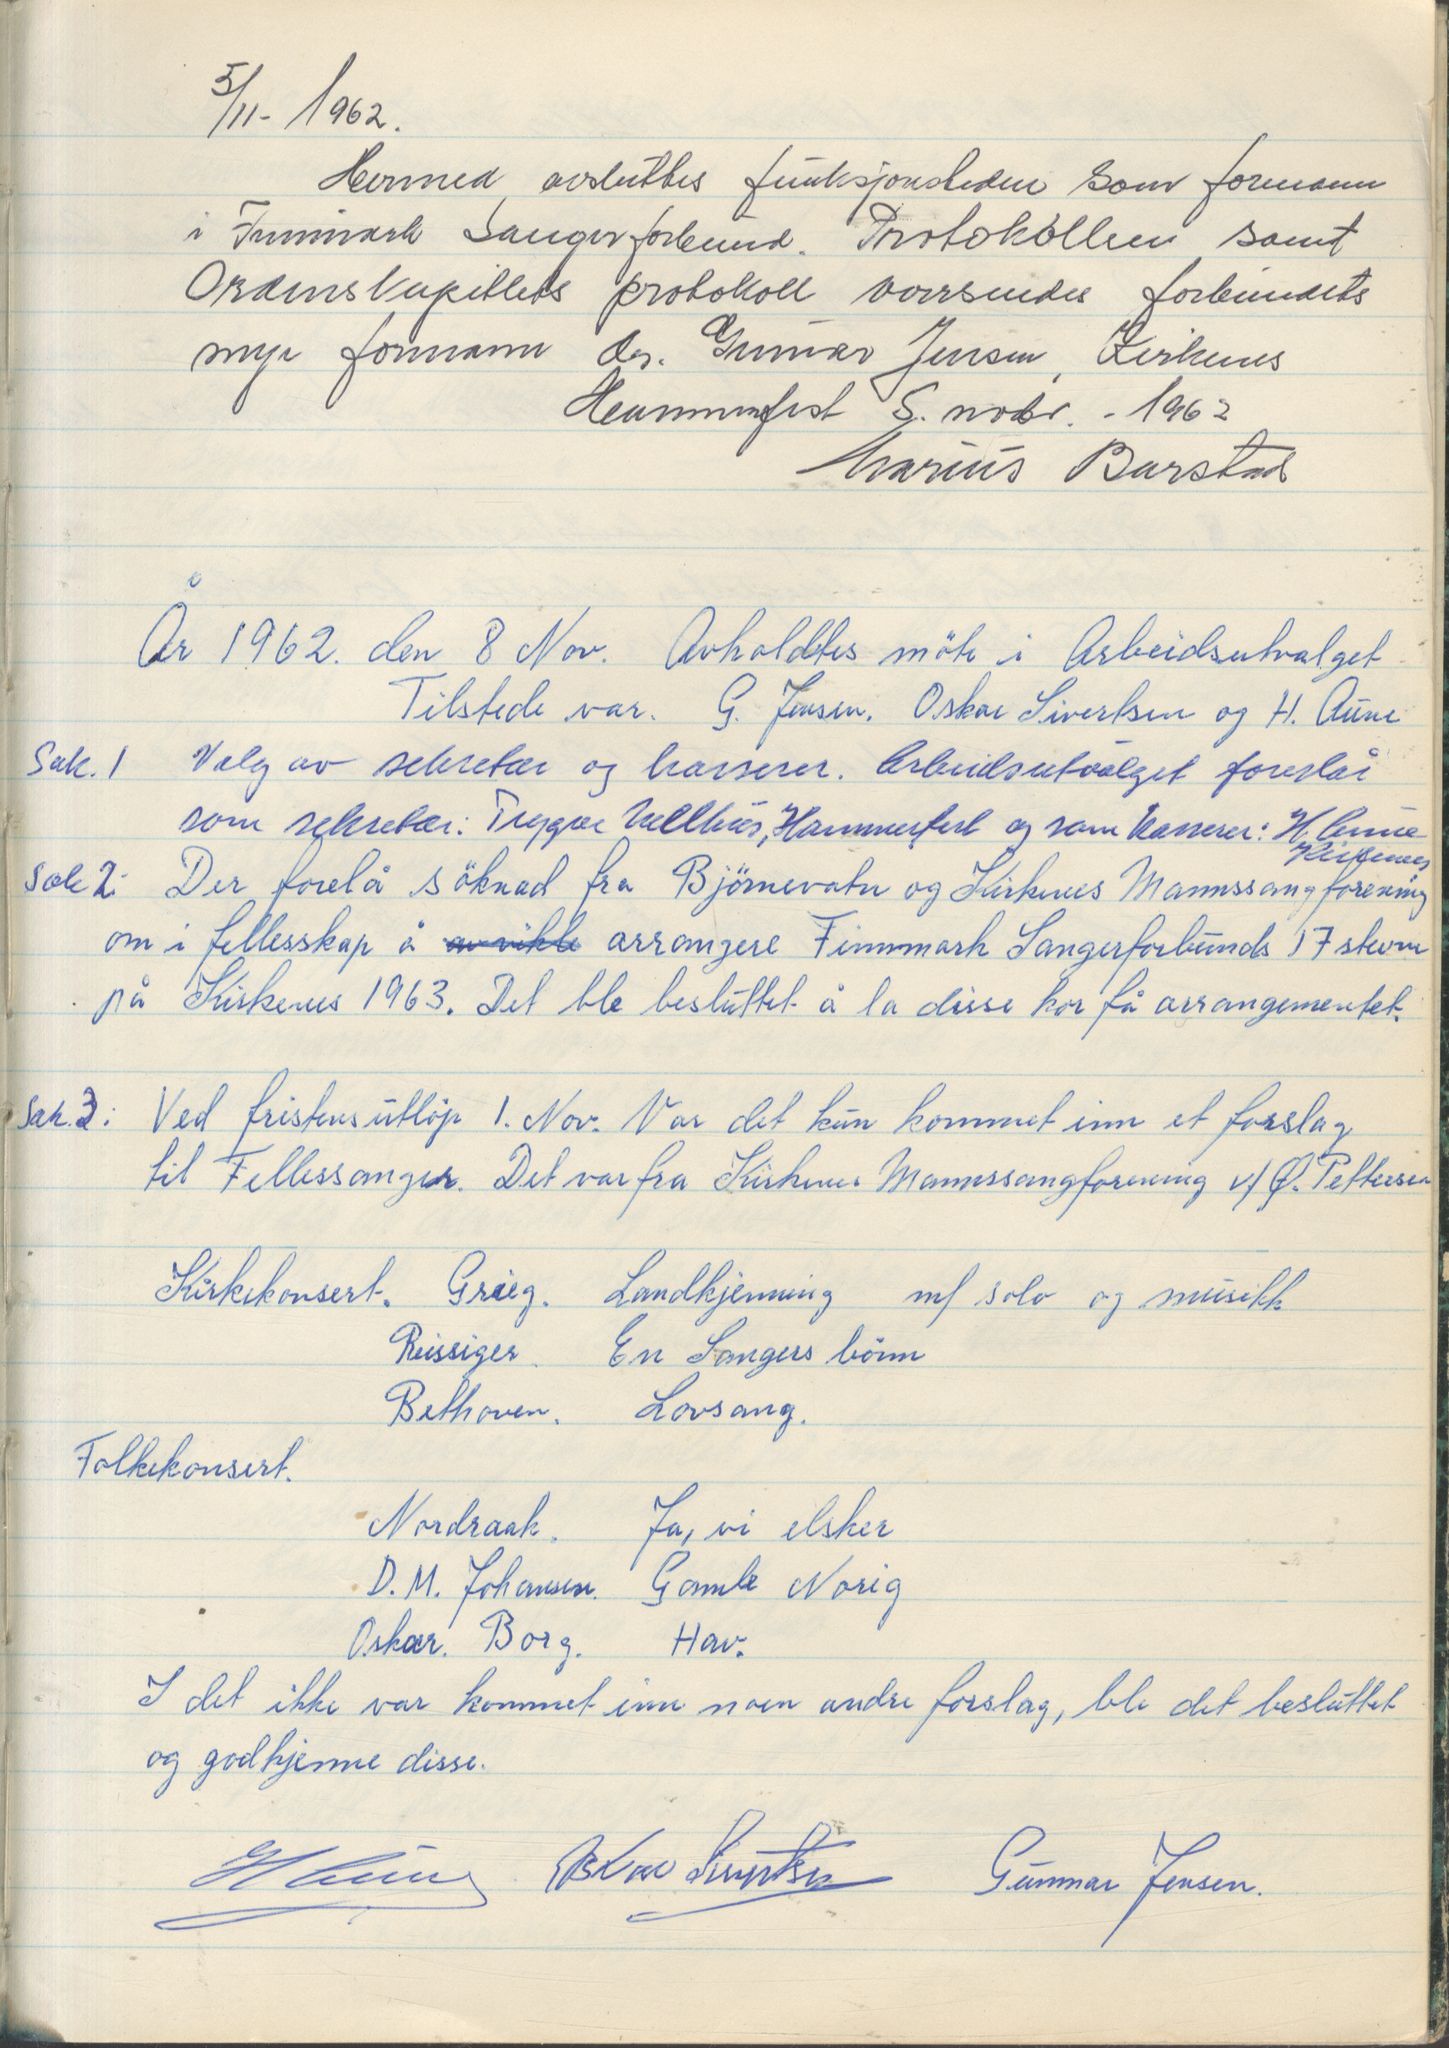 5/11- 1962.
Hermed avsluttes funksjonstiden som formann
i Finnmark Sangerforbund. Protokollen samt
Ordenskapitlets protokoll oversendes forbundets
nye formann hr. Gunnar Jensen, Kirkenes
Hammerfest 5. novbr. - 1962
Marius Barstad
År 1962. den 8 Nov. Avholdtes möte i Arbeidsutvalget
Tilstede var. G. Jensen. Oskar Sivertsen og H. Aune
Sak. 1 Valg av sekretær og kasserer. Arbeidsutvalget foreslår
som sekretær: Trygve Hammerfest og som kasserer: H. Aune
Kirkenes
Sak 2: Der forelå söknad fra Björnevatn og Kirkenes Mannssangforening
om i fellesskap å avvikle arrangere Finnmark Sangerforbunds 17 stevne
på Kirkenes 1963. Det ble besluttet å la disse kor få arrangementet.
Sak. 3: Ved fristens utlöp 1. Nov. Var det kun kommet inn et forslag
til Fellessanger. Det var fra Kirkenes Mannssangforening v/ Ø. Pettersen
Kirkekonsert. Grieg. Landkjenning m/ solo og musikk
Reissiger. En Sangers bönn
Bethoven. Lovsang.
Folkekonsert.
Nordraak. Ja, vi elsker
D. M. Johansen. Gamle Norig
Oskar. Borg. Hav.
I det ikke var kommet inn noen andre forslag, ble det besluttet
og godkjenne disse.
H Aune Oskar Sivertsen Gunnar Jensen.